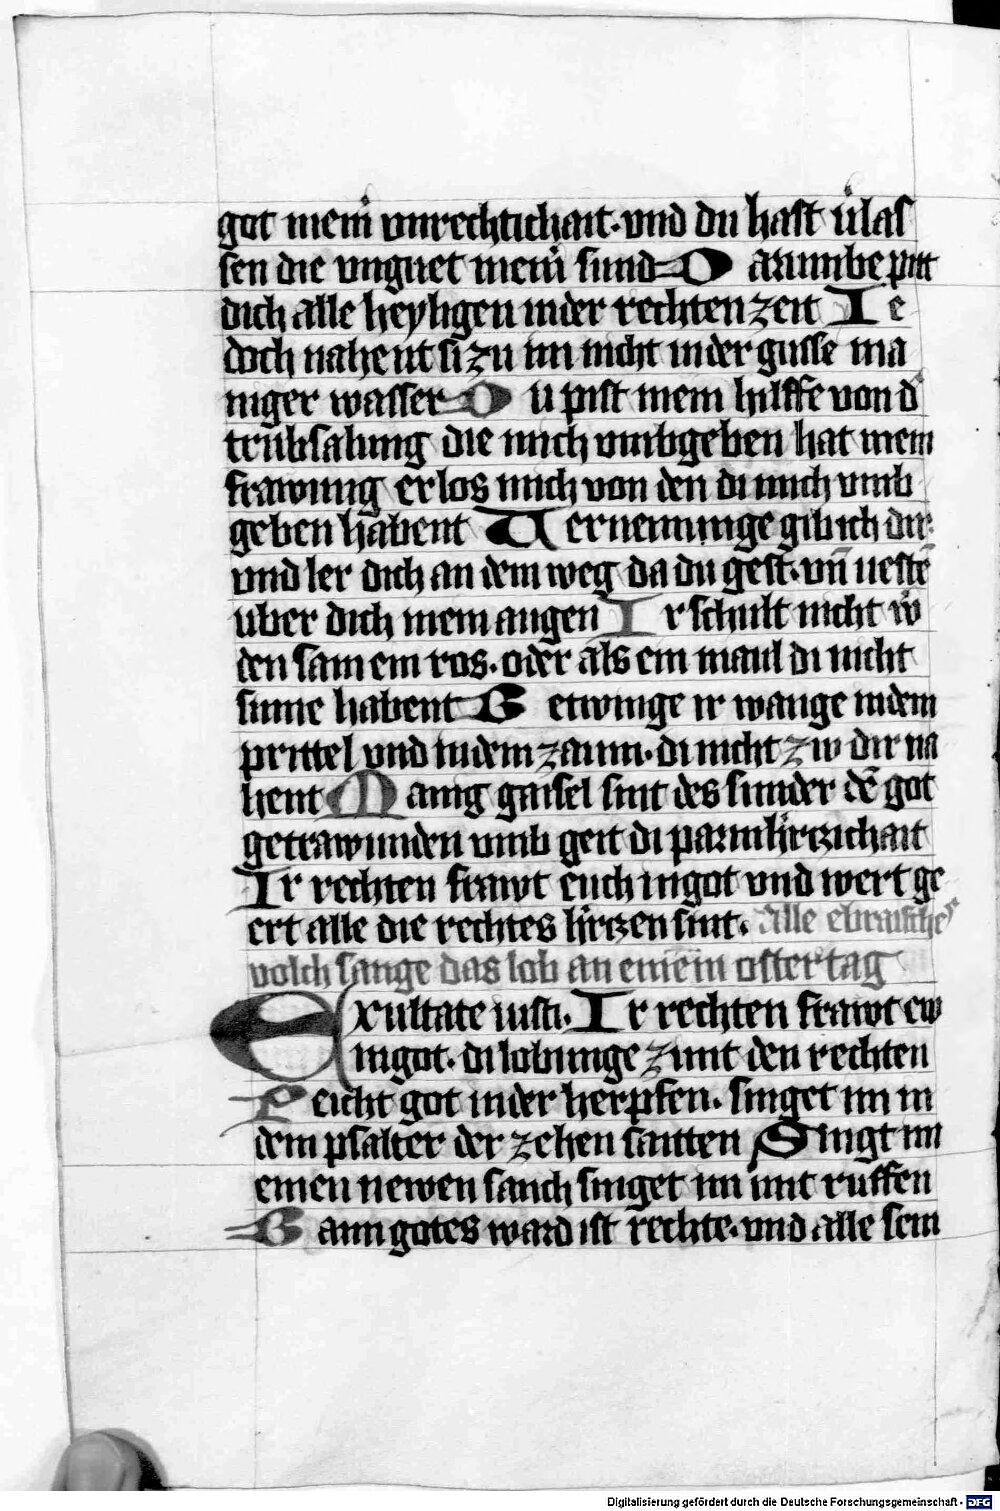 got mein̄ vnrechtichait · vnd du hast v̓las
sen die vnguet mein̓ sund D arumbe pitt
dich alle heyligen inder rechten zeit Ie
doch nahent si zu im nicht inder gusse ma
niger wasser D u pist mein hilffe von d̓
trubsalung die mich vmbgeben hat mein
frawung erlos mich von den di mich vmb
geben habent V ernemunge gib ich dir
vnd ler dich an dem weg da du gest · vn̄ uestē
uber dich mein augen I r schult nicht w̓
den sam ein ros · oder als ein maul di nicht
sinne habent B etwinge ir wange indem
prittel vnd indem zaum · di nicht zw dir na
hent M anig gaisel sint des sunder dē got
getrawunden vmb geit di parmh̓rczichait
Ir rechten frawt euch ingot vnd wert ge
ert alle die rechtes h̓rczen sint · Alle ebraische
volch sange das lob an einem ostertag
Exultate iusti · Ir rechten frawt ew
ingot · di lobunge zimt den rechten
P eicht got inder herpfen · singet im in
dem psalter der zehen saitten S ingt im
einen newen sanch singet im mit ruffen
B ann gotes ward ist rechte · vnd alle sein
Digitalisierung gefördert durch die Deutsche Forschungsgemeinschaft - DFG